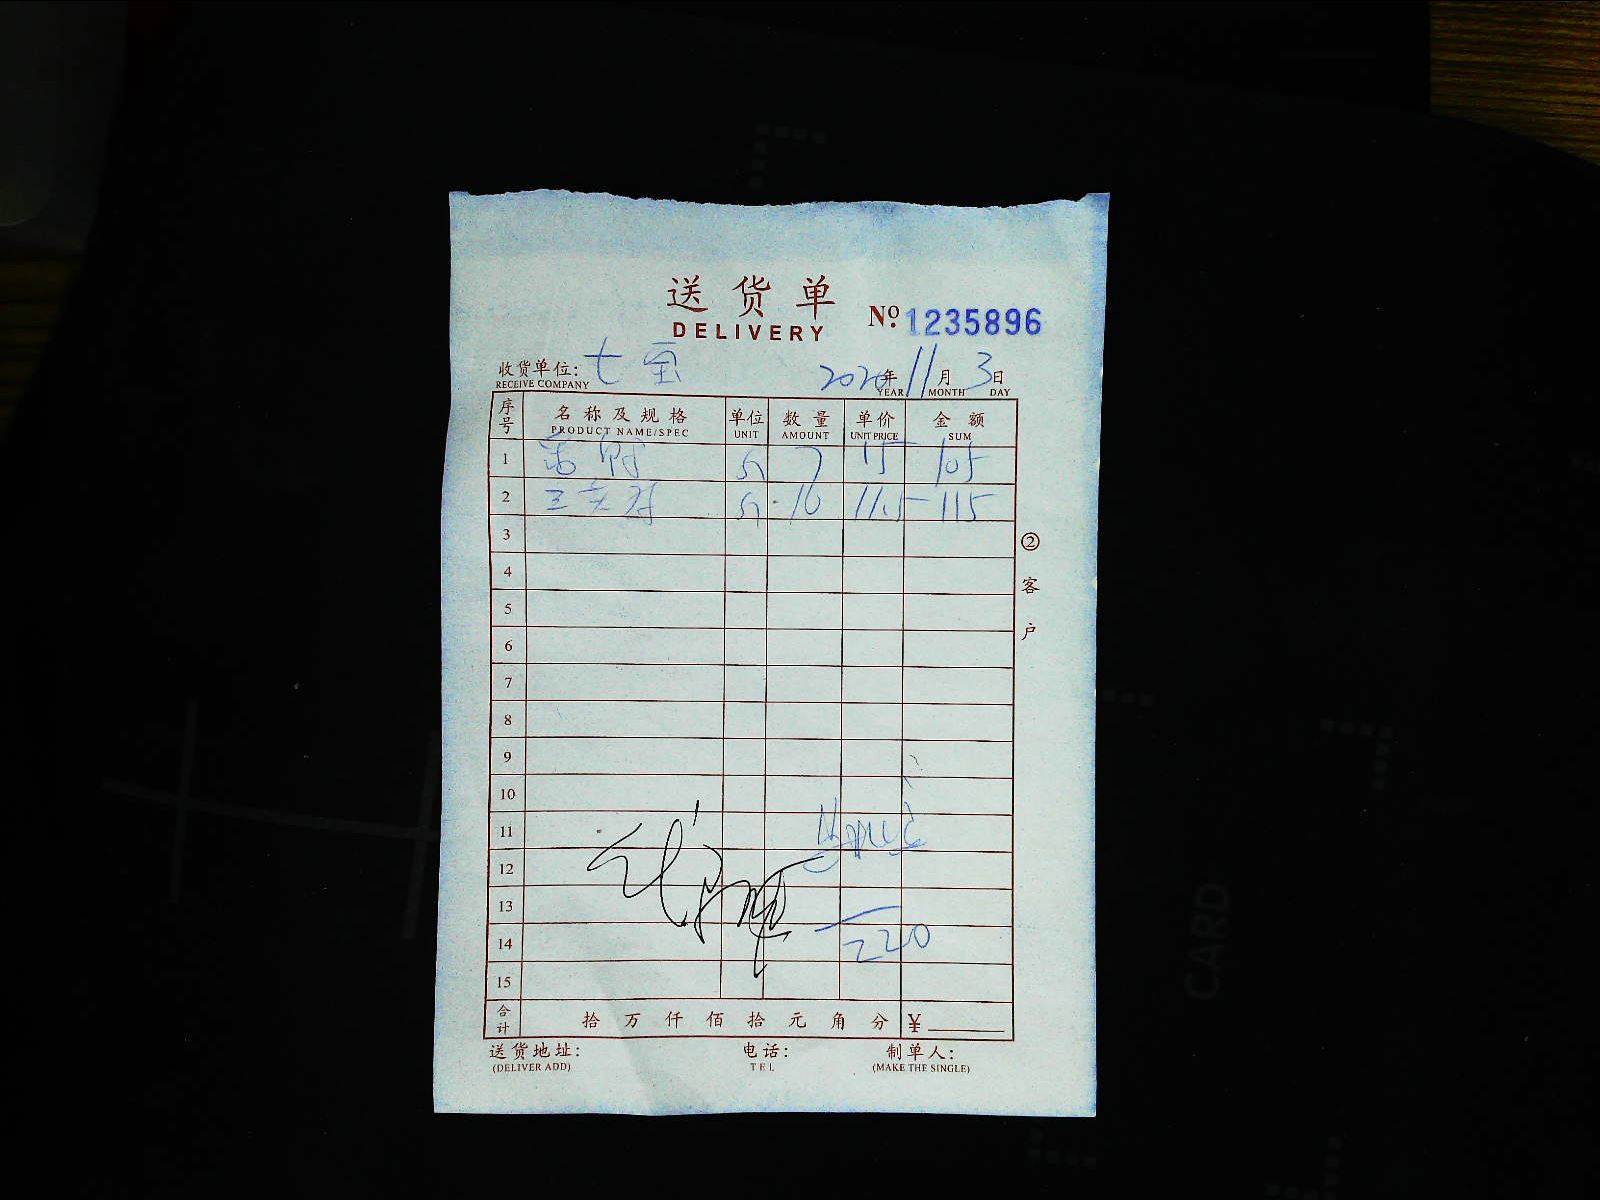 送货单
DELIVERY
№ 1235896
收货单位: 七宝 2020年 11月 3日
RECEIVE COMPANY YEAR MONTH DAY
序号 名称及规格 单位 数量 单价 金额
PRODUCT NAME/SPEC UNIT AMOUNT UNIT PRICE SUM
1 斤 7 15 105
2 斤 10 11.5 115
3
4
5
6
7
8
9
10
11
12
13
14 220
15
合计 拾 万 仟 佰 拾 元 角 分 ¥
送货地址: 电话: 制单人:
(DELIVER ADD) TEL (MAKE THE SINGLE)
②客户
CARD